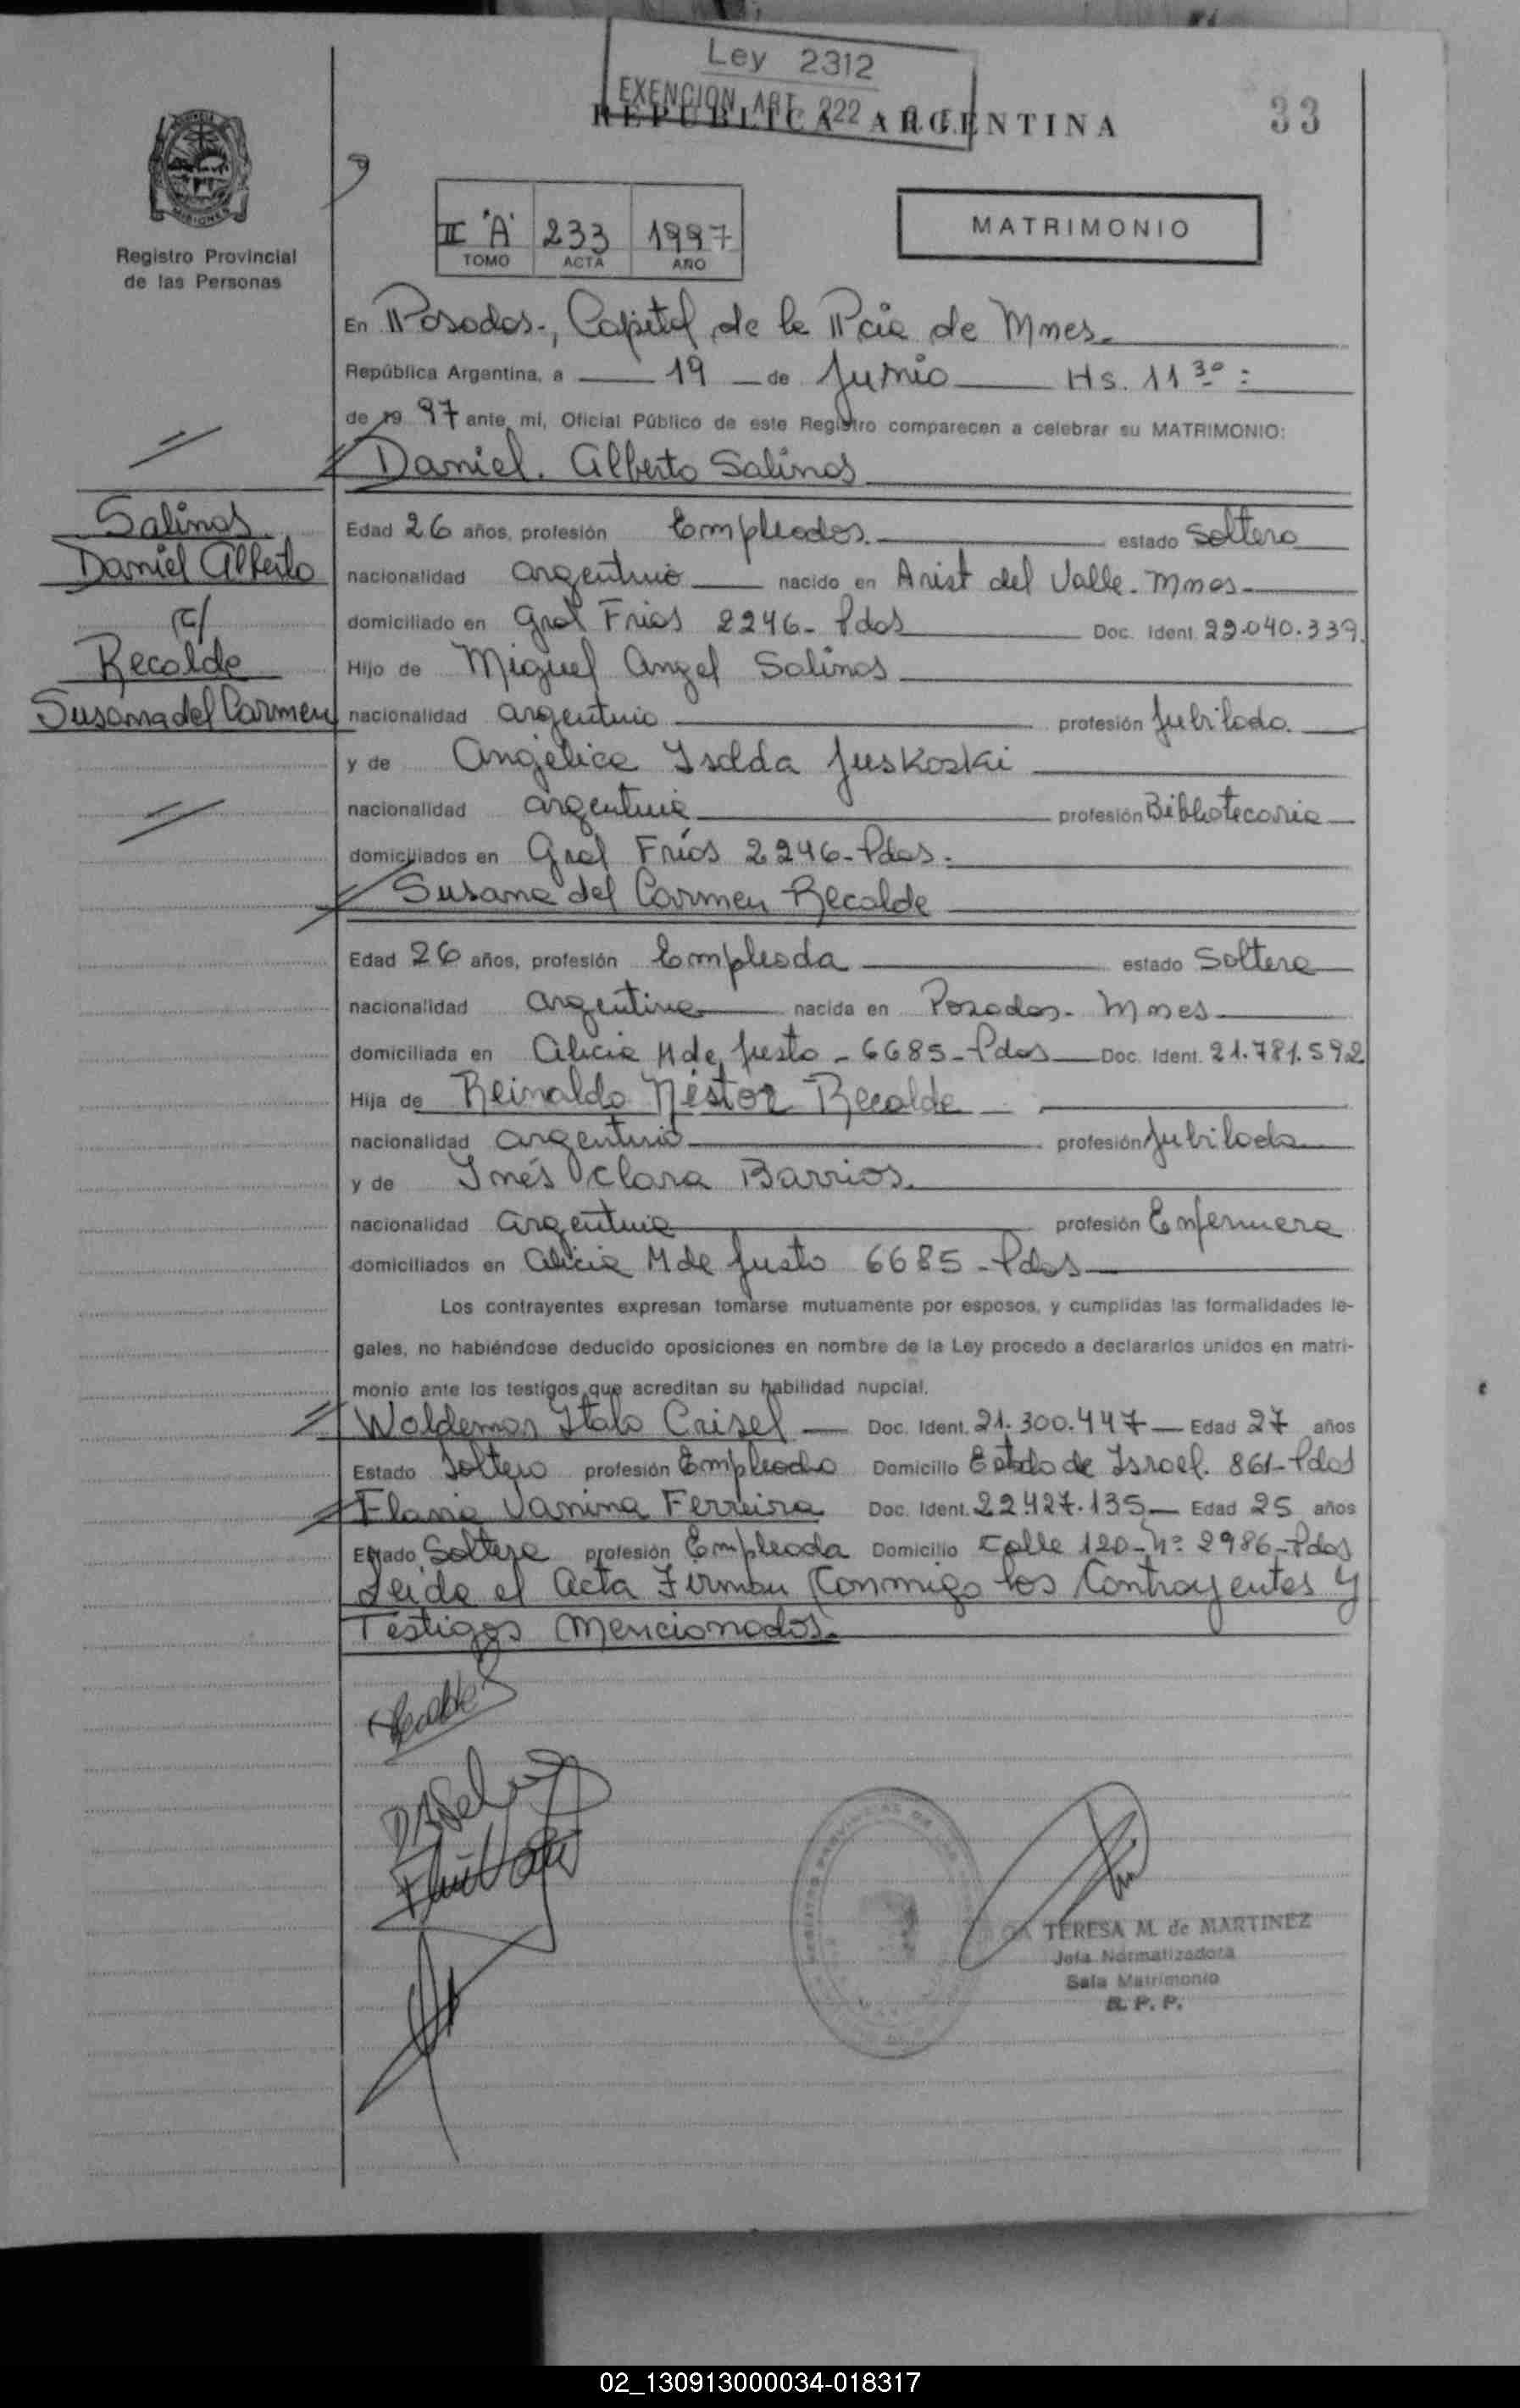 Ley 2312
EXENCION ART. 222
REPUBLICA ARGENTINA
33
MISIONES
Registro Provincial
de las Personas
II "A" 233 1997
TOMO ACTA AÑO
MATRIMONIO
En Posadas-, Capital de la Pcia de Mnes.
República Argentina, a 19 de Junio Hs. 11 30 =
de 19 97 ante mi, Oficial Público de este Registro comparecen a celebrar su MATRIMONIO:
Daniel. Alberto Salinas
Salinas
Daniel Alberto
c/
Recalde
Susana del Carmen
Edad 26 años, profesión Empleados. estado Soltero
nacionalidad argentino nacido en Arist del Valle. Mnes.
domiciliado en Gral Frias 2246- Pdas Doc. Ident. 22.040.339.
Hijo de Miguel Angel Salinas
nacionalidad argentino profesión Jubilado.
y de Angélica Isolda Juskoski
nacionalidad argentina profesión Bibliotecaria
domiciliados en Gral Frías 2246-Pdas.
Susana del Carmen Recalde
Edad 26 años, profesión Empleada estado Soltera
nacionalidad argentina nacida en Posadas- Mnes
domiciliada en Alicia M de Justo - 6685-Pdas Doc. Ident. 21.781.592
Hija de Reinaldo Néstor Recalde
nacionalidad argentino profesión Jubilado
y de Inés Clara Barrios.
nacionalidad argentina profesión Enfermera
domiciliados en Alicia M de Justo 6685-Pdas
Los contrayentes expresan tomarse mutuamente por esposos, y cumplidas las formalidades le-
gales, no habiéndose deducido oposiciones en nombre de la Ley procedo a declararlos unidos en matri-
monio ante los testigos que acreditan su habilidad nupcial.
Woldemar Italo Crisel Doc. Ident. 21.300.447 Edad 27 años
Estado Soltero profesión Empleado Domicilio Estado de Israel. 861-Pdas
Flavia Vanina Ferreira Doc. Ident. 22.427.135 Edad 25 años
Estado Soltera profesión Empleada Domicilio Calle 120-Nº 2986-Pdas
Leida el Acta Firman Conmigo los Contrayentes y
Testigos Mencionados.
TERESA M. de MARTINEZ
Jefa Normatizadora
Sala Matrimonio
R. P. P.
02_130913000034-018317